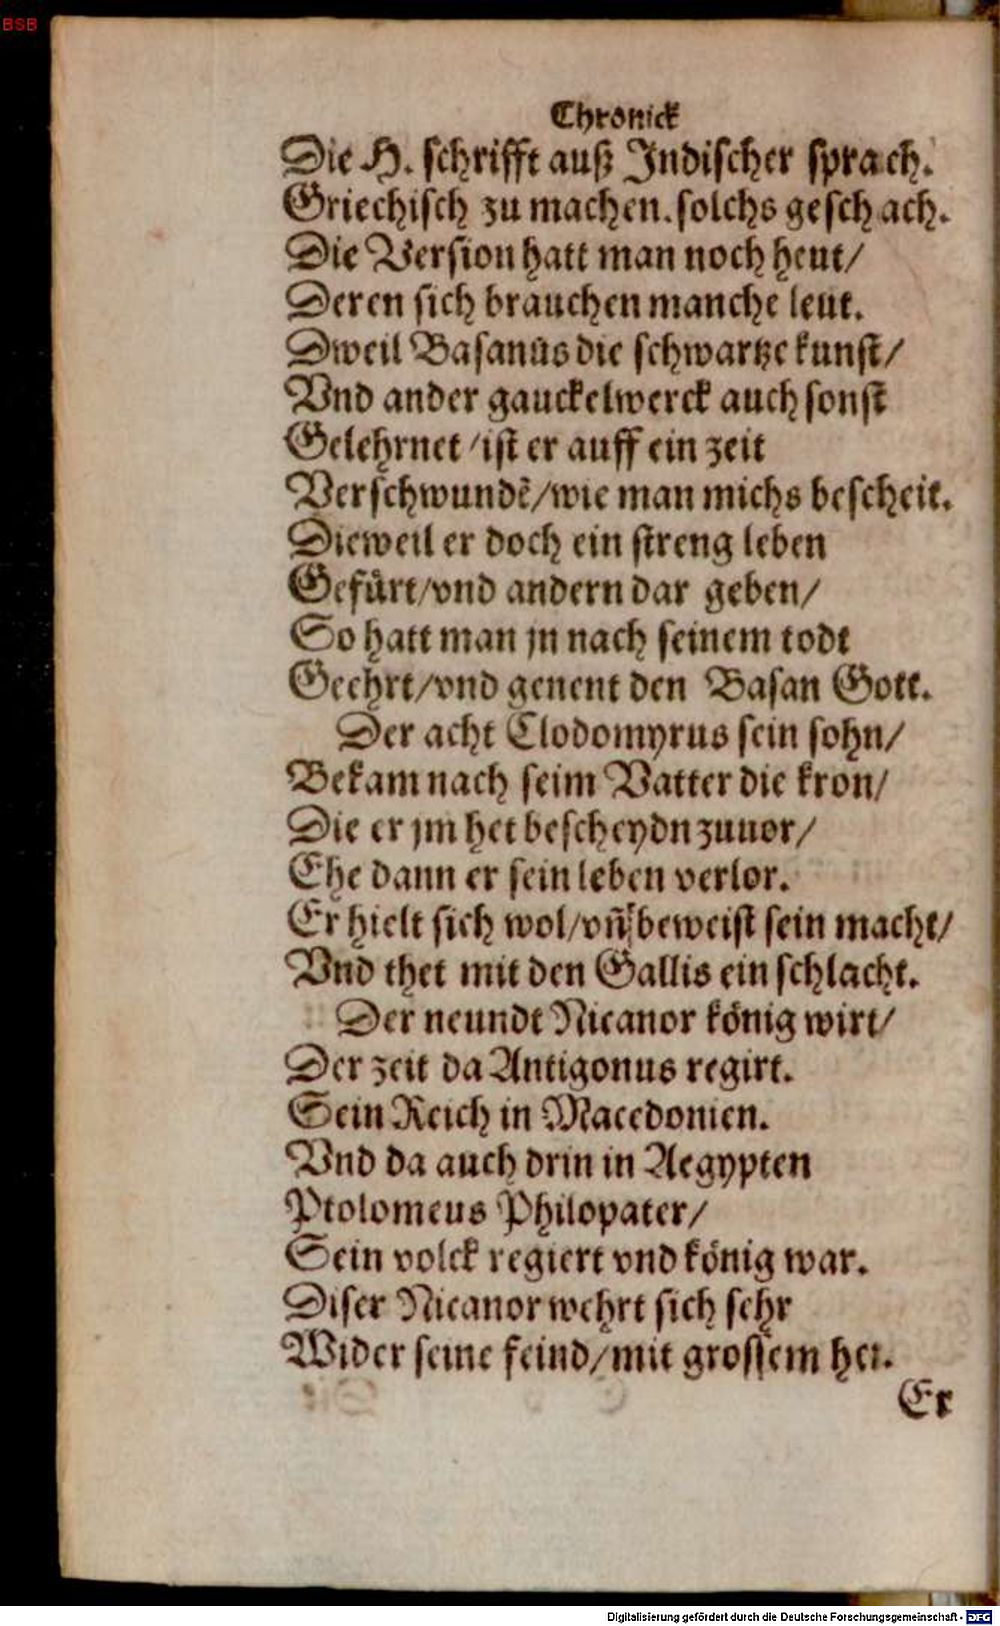 BSB
Chronick
Die H. schrifft auß Indischer sprach.
Griechisch zu machen. solchs geschach.
Die Version hatt man noch heut/
Deren sich brauchen manche leut.
Dweil Basanus die schwartze kunst/
Vnd ander gauckelwerck auch sonst
Gelehrnet/ist er auff ein zeit
Verschwundẽ/wie man michs bescheit.
Dieweil er doch ein streng leben
Gefürt/vnd andern dar geben/
So hatt man jn nach seinem todt
Geehrt/vnd genent den Basan Gott.
Der acht Clodomyrus sein sohn/
Bekam nach seim Vatter die kron/
Die er jm het bescheydn zuuor/
Ehe dann er sein leben verlor.
Er hielt sich wol/vñ beweist sein macht/
Vnd thet mit den Gallis ein schlacht.
Der neundt Nicanor könig wirt/
Der zeit da Antigonus regirt.
Sein Reich in Macedonien.
Vnd da auch drin in Aegypten
Ptolomeus Philopater/
Sein volck regiert vnd könig war.
Diser Nicanor wehrt sich sehr
Wider seine feind/mit grossem her.
Er
Digitalisierung gefördert durch die Deutsche Forschungsgemeinschaft - DFG